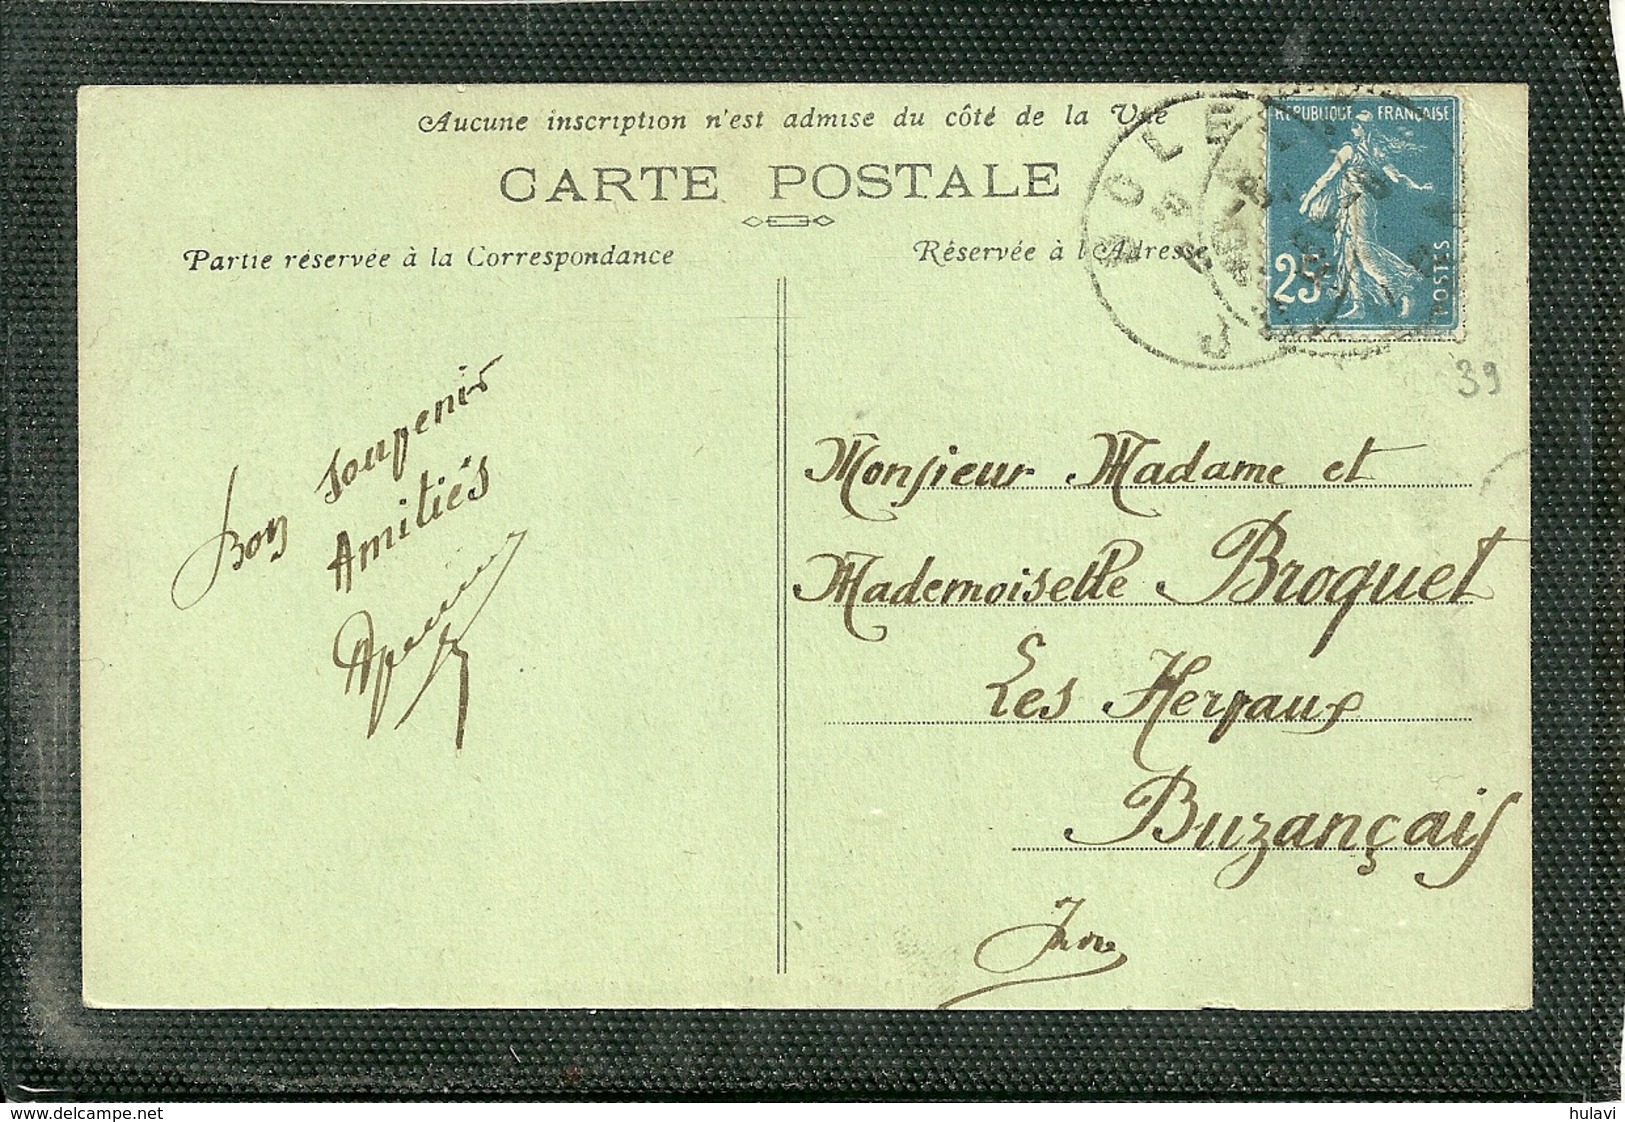 Aucune inscription n'est admise du côté de la Vue
CARTE POSTALE
Partie réservée à la Correspondance
Réservée à l'Adresse
RÉPUBLIQUE FRANÇAISE
25
POSTES
DOLE
JURA
39
Bon souvenir
Amitiés
Monsieur Madame et
Mademoiselle Broquet
Les Hervaux
Buzançais
Indre
www.delcampe.net
hulavi